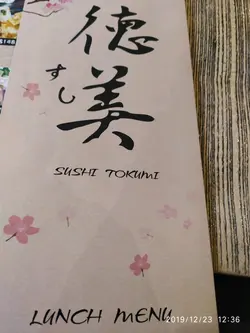 德
すし
美
SUSHI TOKUMI
2019/12/23 12:36
LUNCH MENU